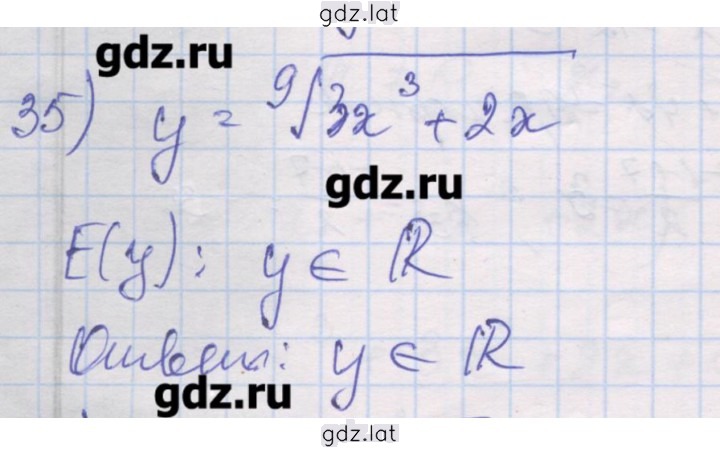 gdz.lat
gdz.ru
35) y = ⁹√(3x³ + 2x)
gdz.ru
E(y): y ∈ ℝ
Ответ: y ∈ ℝ
gdz.ru
gdz.lat